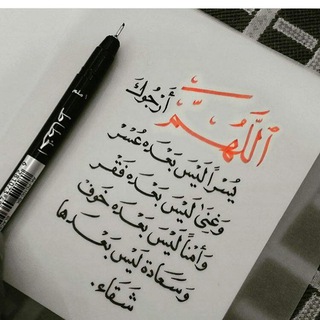 اَللّٰهُمَّ أَرْجُوكَ
يُسْراً لَيْسَ بَعْدَهُ عُسْر
وَغِنَىً لَيْسَ بَعْدَهُ فَقْر
وَأَمْناً لَيْسَ بَعْدَهُ خَوف
وَسَعَادة لَيْسَ بَعْدَها
شَقَاء.
قلم
الخطاط